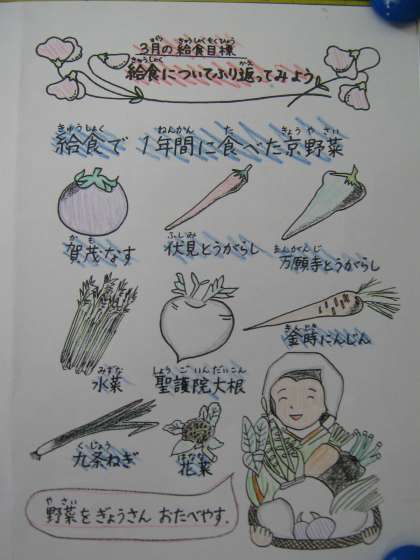 3月の給食目標
給食についてふり返ってみよう
給食で1年間に食べた京野菜
賀茂なす 伏見とうがらし 万願寺とうがらし
水菜 聖護院大根 金時にんじん
九条ねぎ 花菜
野菜をぎょうさん おたべやす.